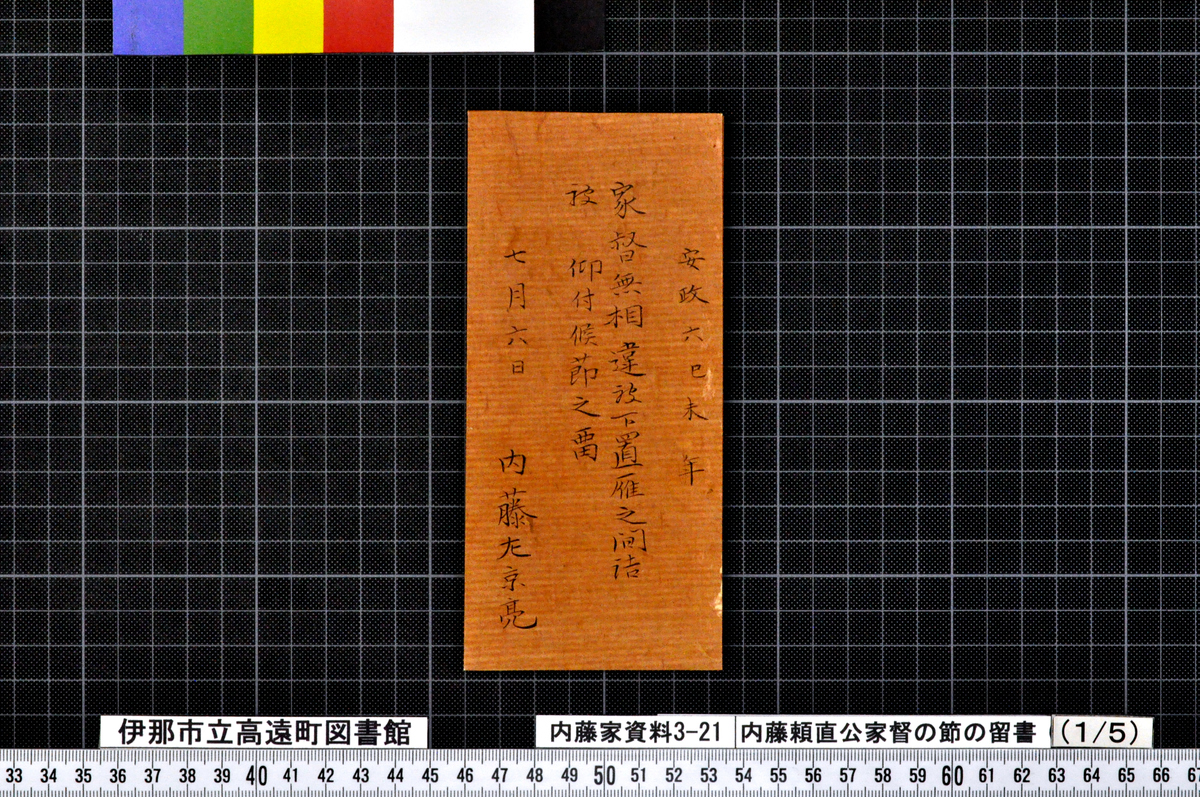 安政六己未年
家督無相違被下置雁之間詰
被 仰付候節之留
七月六日 内藤左京亮
伊那市立高遠町図書館
内藤家資料3-21 内藤頼直公家督の節の留書 (1/5)
33 34 35 36 37 38 39 40 41 42 43 44 45 46 47 48 49 50 51 52 53 54 55 56 57 58 59 60 61 62 63 64 65 66 67